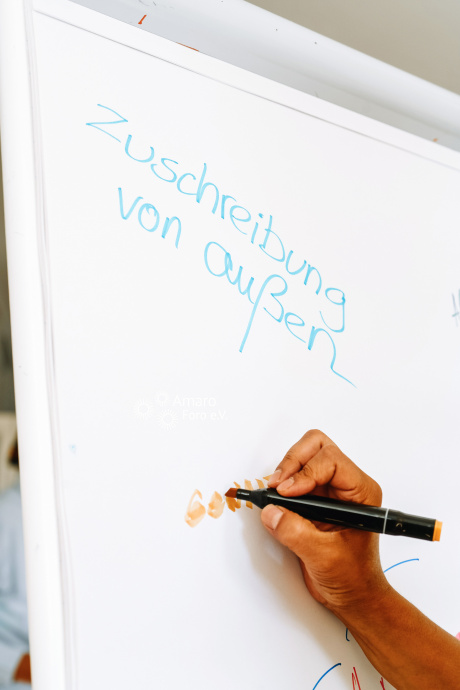 Zuschreibung
von außen
Amaro
Foro e.V